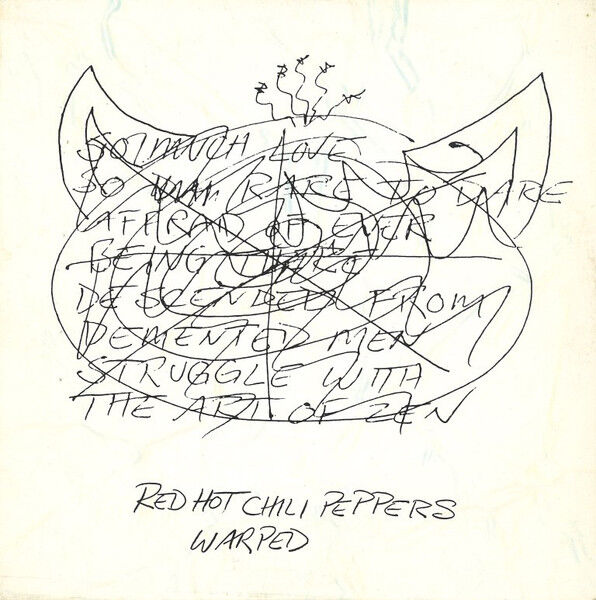 SO MUCH LOVE
SO RARE TO DARE
AFRAID OF EVER
BEING THERE
DESCENDED FROM
DEMENTED MEN
STRUGGLE WITH
THE ART OF ZEN
RED HOT CHILI PEPPERS
WARPED